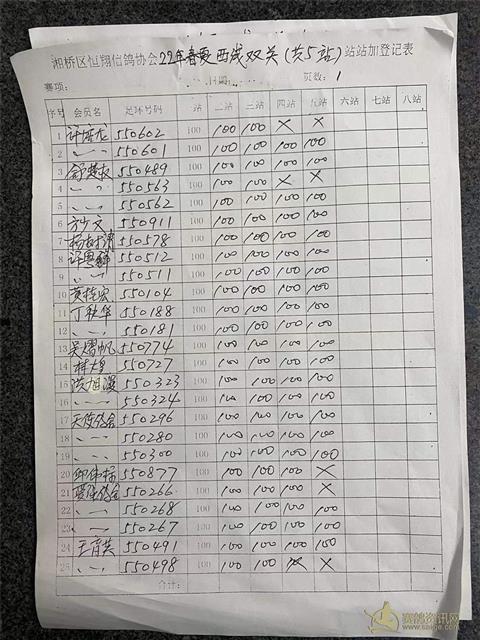 湘桥区恒翔信鸽协会22年春夏西线双关(共5站)站站加登记表
赛项: 日期: 页数: 1
序号 会员名 足环号码 一站 二站 三站 四站 五站 六站 七站 八站
1 550602 100 100 100 × ×
2 〃 550601 100 100 100 100 100
3 550489 100 100 100 100 100
4 〃 550563 100 100 100 × ×
5 〃 550562 100 100 100 100 100
6 方少文 550911 100 100 100 100 100
7 550578 100 100 100 100 100
8 550512 100 100 100 100 100
9 〃 550511 100 100 100 100 100
10 黄桂宏 550104 100 100 100 100 100
11 丁秋华 550188 100 100 100 100 100
12 〃 550181 100 100 100 100 100
13 吴雪帆 550774 100 100 100 100 100
14 林大皇 550727 100 100 100 100 100
15 550323 100 100 100 100 100
16 〃 550324 100 100 100 100 100
17 天使鸽舍 550296 100 100 100 100 100
18 〃 550280 100 100 100 100 100
19 〃 550300 100 100 100 100 100
20 邱伟标 550877 100 100 100 100 ×
21 鸽舍 550266 100 100 100 100 ×
22 〃 550268 100 100 100 100 100
23 〃 550267 100 100 100 100 100
24 王育英 550491 100 100 100 100 100
25 〃 550498 100 100 100 × ×
合计:
赛鸽资讯网
www.saige.com